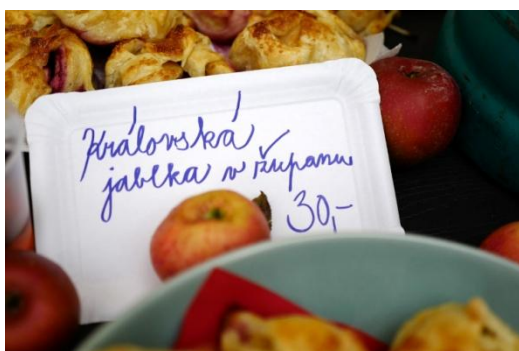 Královská
jablka v županu
30,-